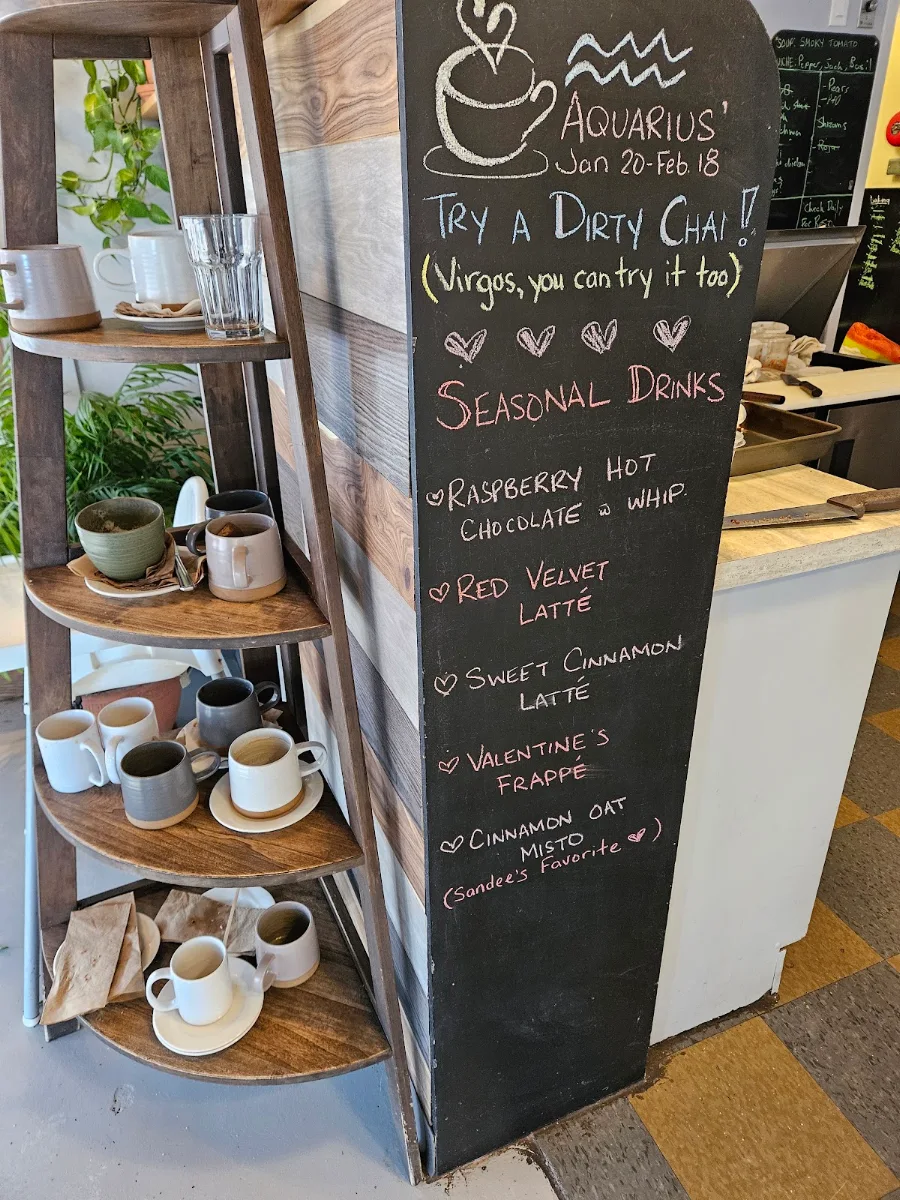 AQUARIUS'
Jan 20-Feb. 18
TRY A DIRTY CHAI!
(Virgos, you can try it too)
SEASONAL DRINKS
RASPBERRY HOT
CHOCOLATE w WHIP.
RED VELVET
LATTÉ
SWEET CINNAMON
LATTÉ
VALENTINE'S
FRAPPÉ
CINNAMON OAT
MISTO
(Sandee's Favorite )
SOUP: SMOKY TOMATO
Pepper, Jack, Basil
Check Daily